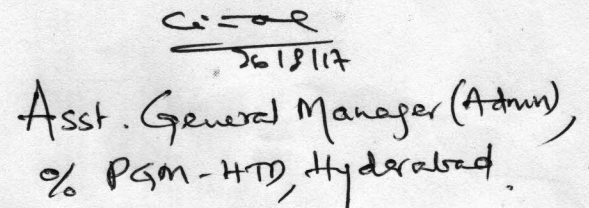 26/8/17
Asst. General Manager (Admn),
% PGM-HTD, Hyderabad.